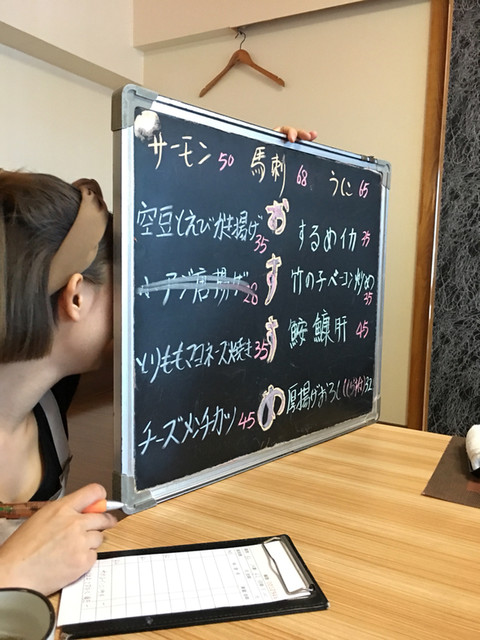 サーモン 50 馬刺 68 うに 65
おすすめ
空豆とえびかき揚げ 35
小アジ唐揚げ 28
とりももマヨネーズ焼き 35
チーズメンチカツ 45
するめイカ 35
竹の子ベーコン炒め 35
鮟鱇肝 45
厚揚げおろし 32